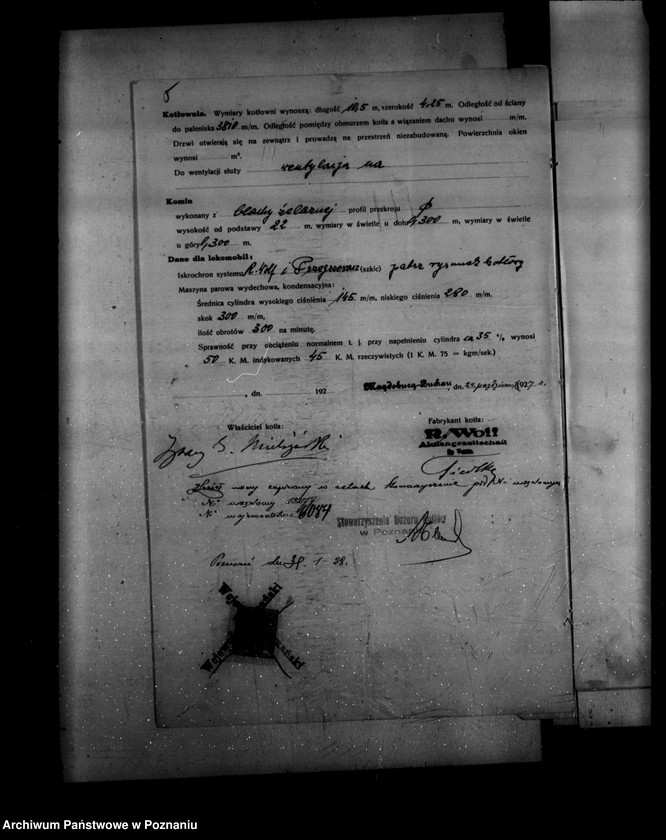 Kotłownia. Wymiary kotłowni wynoszą: długość 10,5 m, szerokość 4,25 m. Odległość od ściany
do paleniska 3810 m/m. Odległość pomiędzy obmurzem kotła a wiązaniem dachu wynosi m/m.
Drzwi otwierają się na zewnątrz i prowadzą na przestrzeń niezabudowaną. Powierzchnia okien
wynosi m².
Do wentylacji służy wentylacja na
Komin
wykonany z blachy żelaznej profil przekroju
wysokość od podstawy 22 m, wymiary w świetle u dołu 0,300 m, wymiary w świetle
u góry 0,300 m.
Dane dla lokomobil:
Iskrochron systemu R. Wolf i (szkic) patrz rysunek kotłowy
Maszyna parowa wydechowa, kondensacyjna:
Średnica cylindra wysokiego ciśnienia 145 m/m, niskiego ciśnienia 280 m/m.
skok 300 m/m,
ilość obrotów 300 na minutę.
Sprawność przy obciążeniu normalnem t. j. przy napełnieniu cylindra ca 35 %, wynosi
50 K. M. indykowanych 45 K. M. rzeczywistych (1 K. M. 75 = kgm/sek.)
, dn. 192
Magdeburg-Buckau, dn. 1927 r.
Właściciel kotła:
Fabrykant kotła:
R. Wolf
Aktiengesellschaft
nowy zapisany w aktach Stowarzyszenia pod Nr
Nr
Nr województwa 6084
Stowarzyszenie Dozoru Kotłów
w Poznaniu
Poznań dn. 31. 1 - 28.
Archiwum Państwowe w Poznaniu